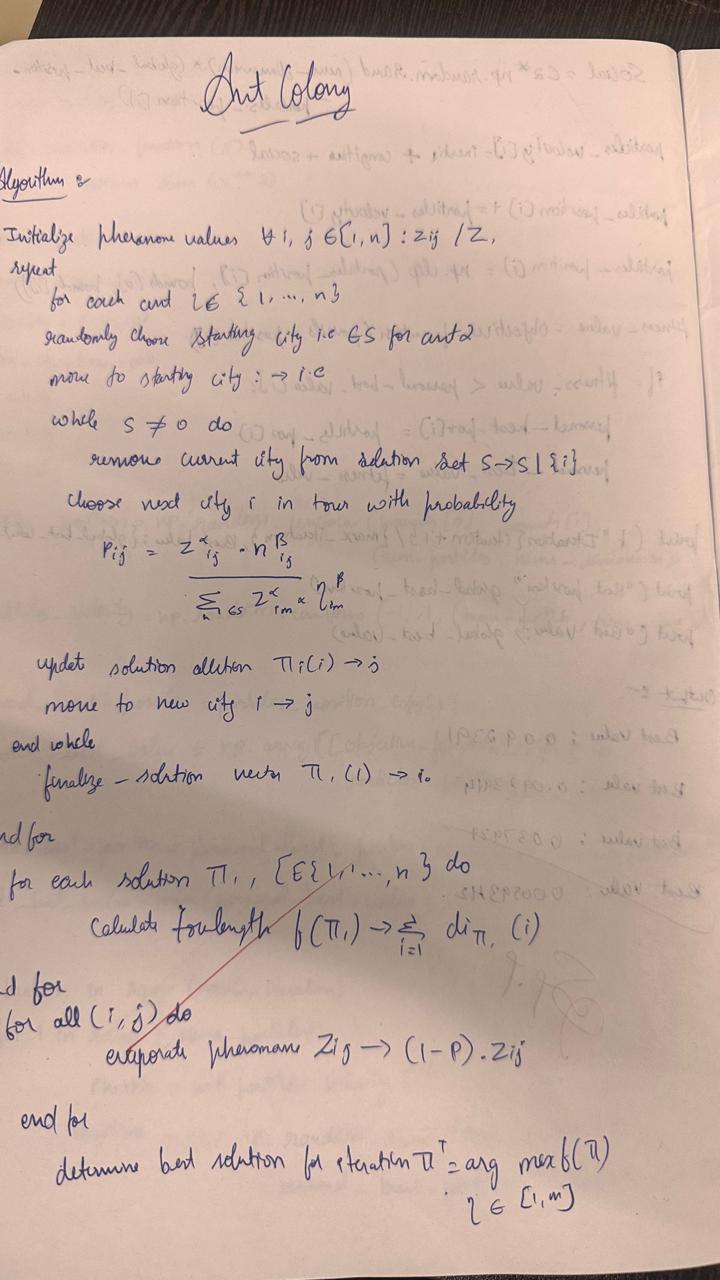 Ant Colony
Algorithm :
Initialize pheromone values ∀ i, j ∈ [1, n] : Zij / Z,
repeat
for each ant l ∈ { 1, ..., n }
randomly choose starting city i.e ∈ S for ant 2
move to starting city : → i.e
while S ≠ 0 do
remove current city from solution set S → S | {i}
choose next city i in tour with probability
Pij = Z^α ij . n^β ij
Σ ∈S Z^α im × η^β im
updat solution Πi(i) → j
move to new city i → j
end while
finalize - solution vector Π, (i) → i.
nd for
for each solution Π,, [∈{1,1...,n} do
Calculate length f(Π,) → Σ i=1 diΠ, (i)
d for
for all (i, j) do
evaporate pheromone Zij → (1-P) . Zij
end for
determine best solution for iteration Π^T = arg max f(Π)
l ∈ [1, m]